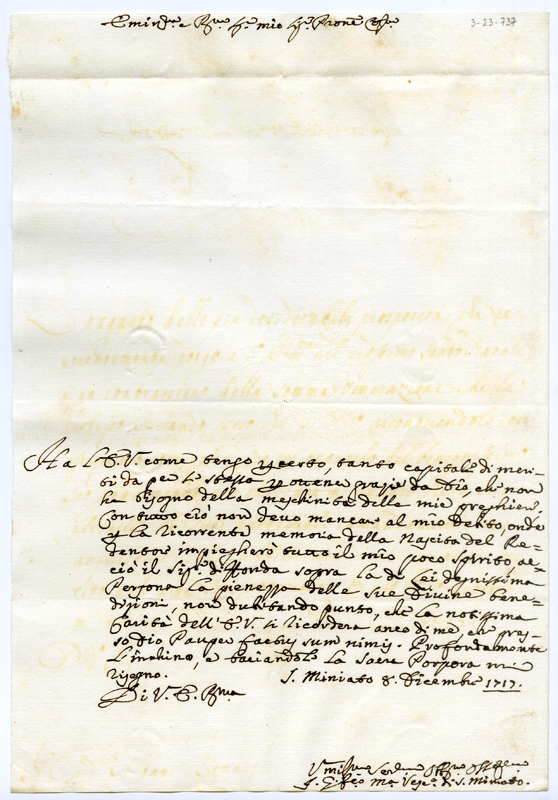 3-23-737
Emin.mo e R.mo S.r mio S.r Prone Col.mo
Ha l'E.V. come tengo p certo, tanto capitale di meri-
ti da per se stessa p ottener grazie da Dio, che non
ha bisogno della meschinità delle mie preghiere.
Con tutto ciò non devo mancar al mio debito, onde
p la ricorrente memoria della Nascita del Re-
dentore impiegherò tutto il mio poco spirito, ac-
ciò il Sig.re diffonda sopra la di Lei degnissima
Persona la pienezza delle sue Divine bene-
dizioni, non dubitando punto, che la notissima
Carità dell'E.V. si ricorderà anco di me, che pres-
so Dio Pauper factus sum nimis. Profondamente
l'inchino, e baciandole la Sacra Porpora mi
rasegno. S. Miniato 8. Dicembre 1717.
Di V. E. R.ma
Umil.mo
Ves.o di S. Miniato.